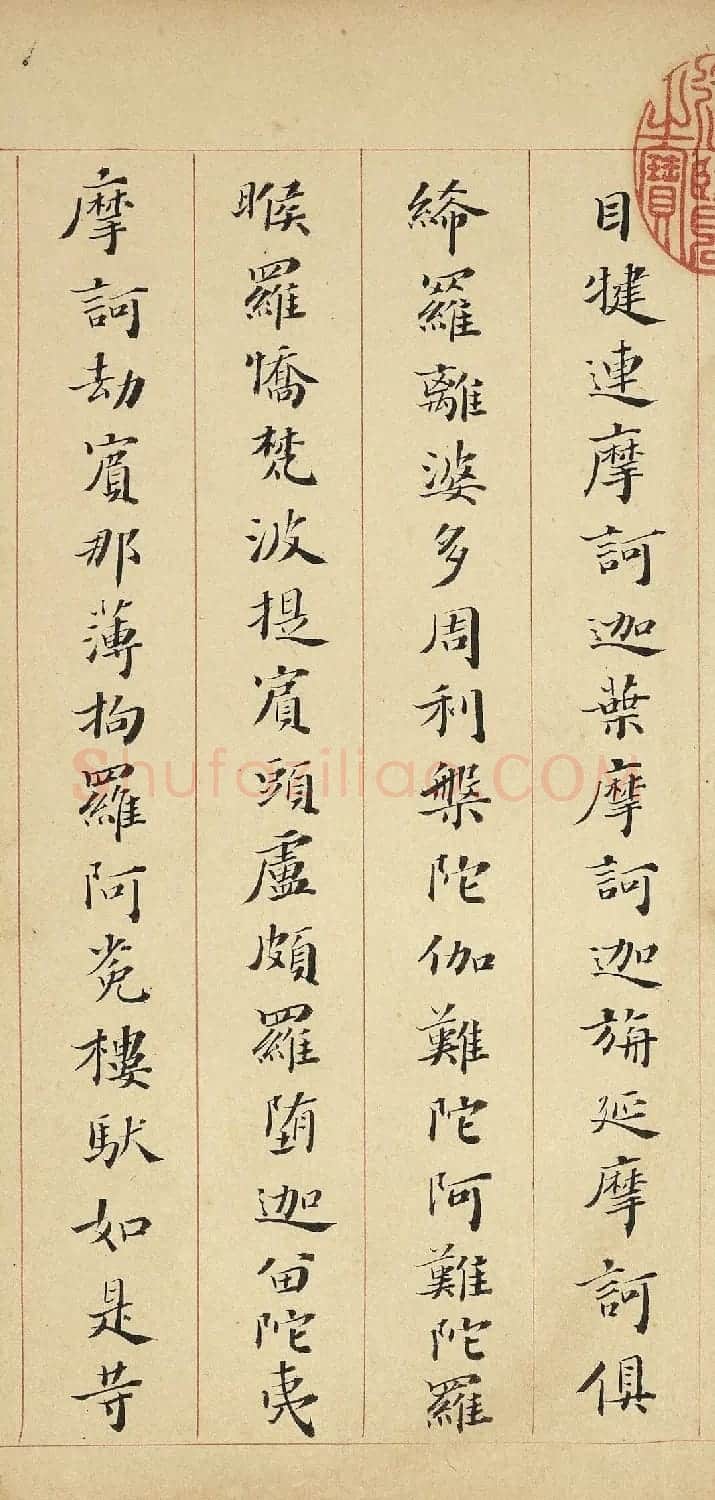 目犍連摩訶迦葉摩訶迦旃延摩訶俱
絺羅離婆多周利槃陀伽難陀阿難陀羅
睺羅憍梵波提賓頭盧頗羅墮迦留陀夷
摩訶劫賓那薄拘羅阿㝹樓馱如是等
Shufaziliao.COM